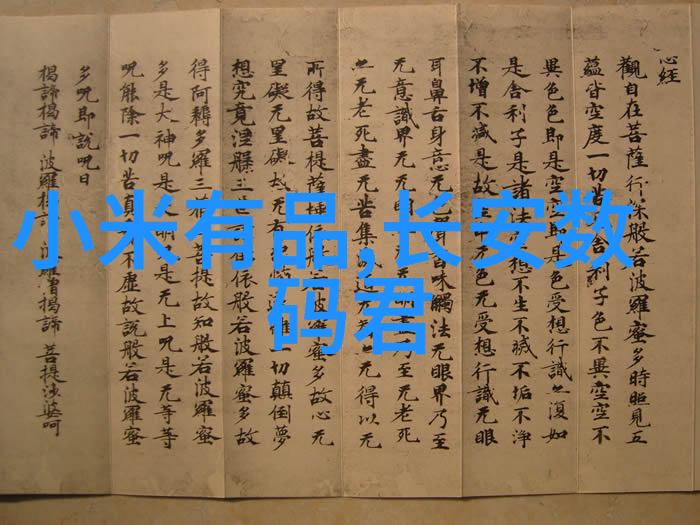 心经
觀自在菩薩行深般若波羅蜜多時照見五
蘊皆空度一切苦舍利子色不異空空不
異色色即是空空即是色受想行識亦復如
是舍利子是諸法想不生不滅不垢不淨
不增不減是故空中无色无受想行識无眼
耳鼻舌身意无香味觸法无眼界乃至
无意識界无无明无无明盡乃至无老死
亦无老死盡无苦集滅道无亦无得以无
所得故菩提薩埵依般若波羅蜜多故心无
罣礙无罣礙故无有恐怖離一切顛倒夢
想究竟涅槃三世依般若波羅蜜多故
得阿耨多羅三藐菩提故知般若波羅蜜
多是大神呪是大明呪是无上呪是无等等
呪能除一切苦真不虛故說般若波羅蜜
多呪即說呪曰
揭諦揭諦 波羅揭諦 波羅僧揭諦 菩提沙婆呵
小米有品,长安数
码君